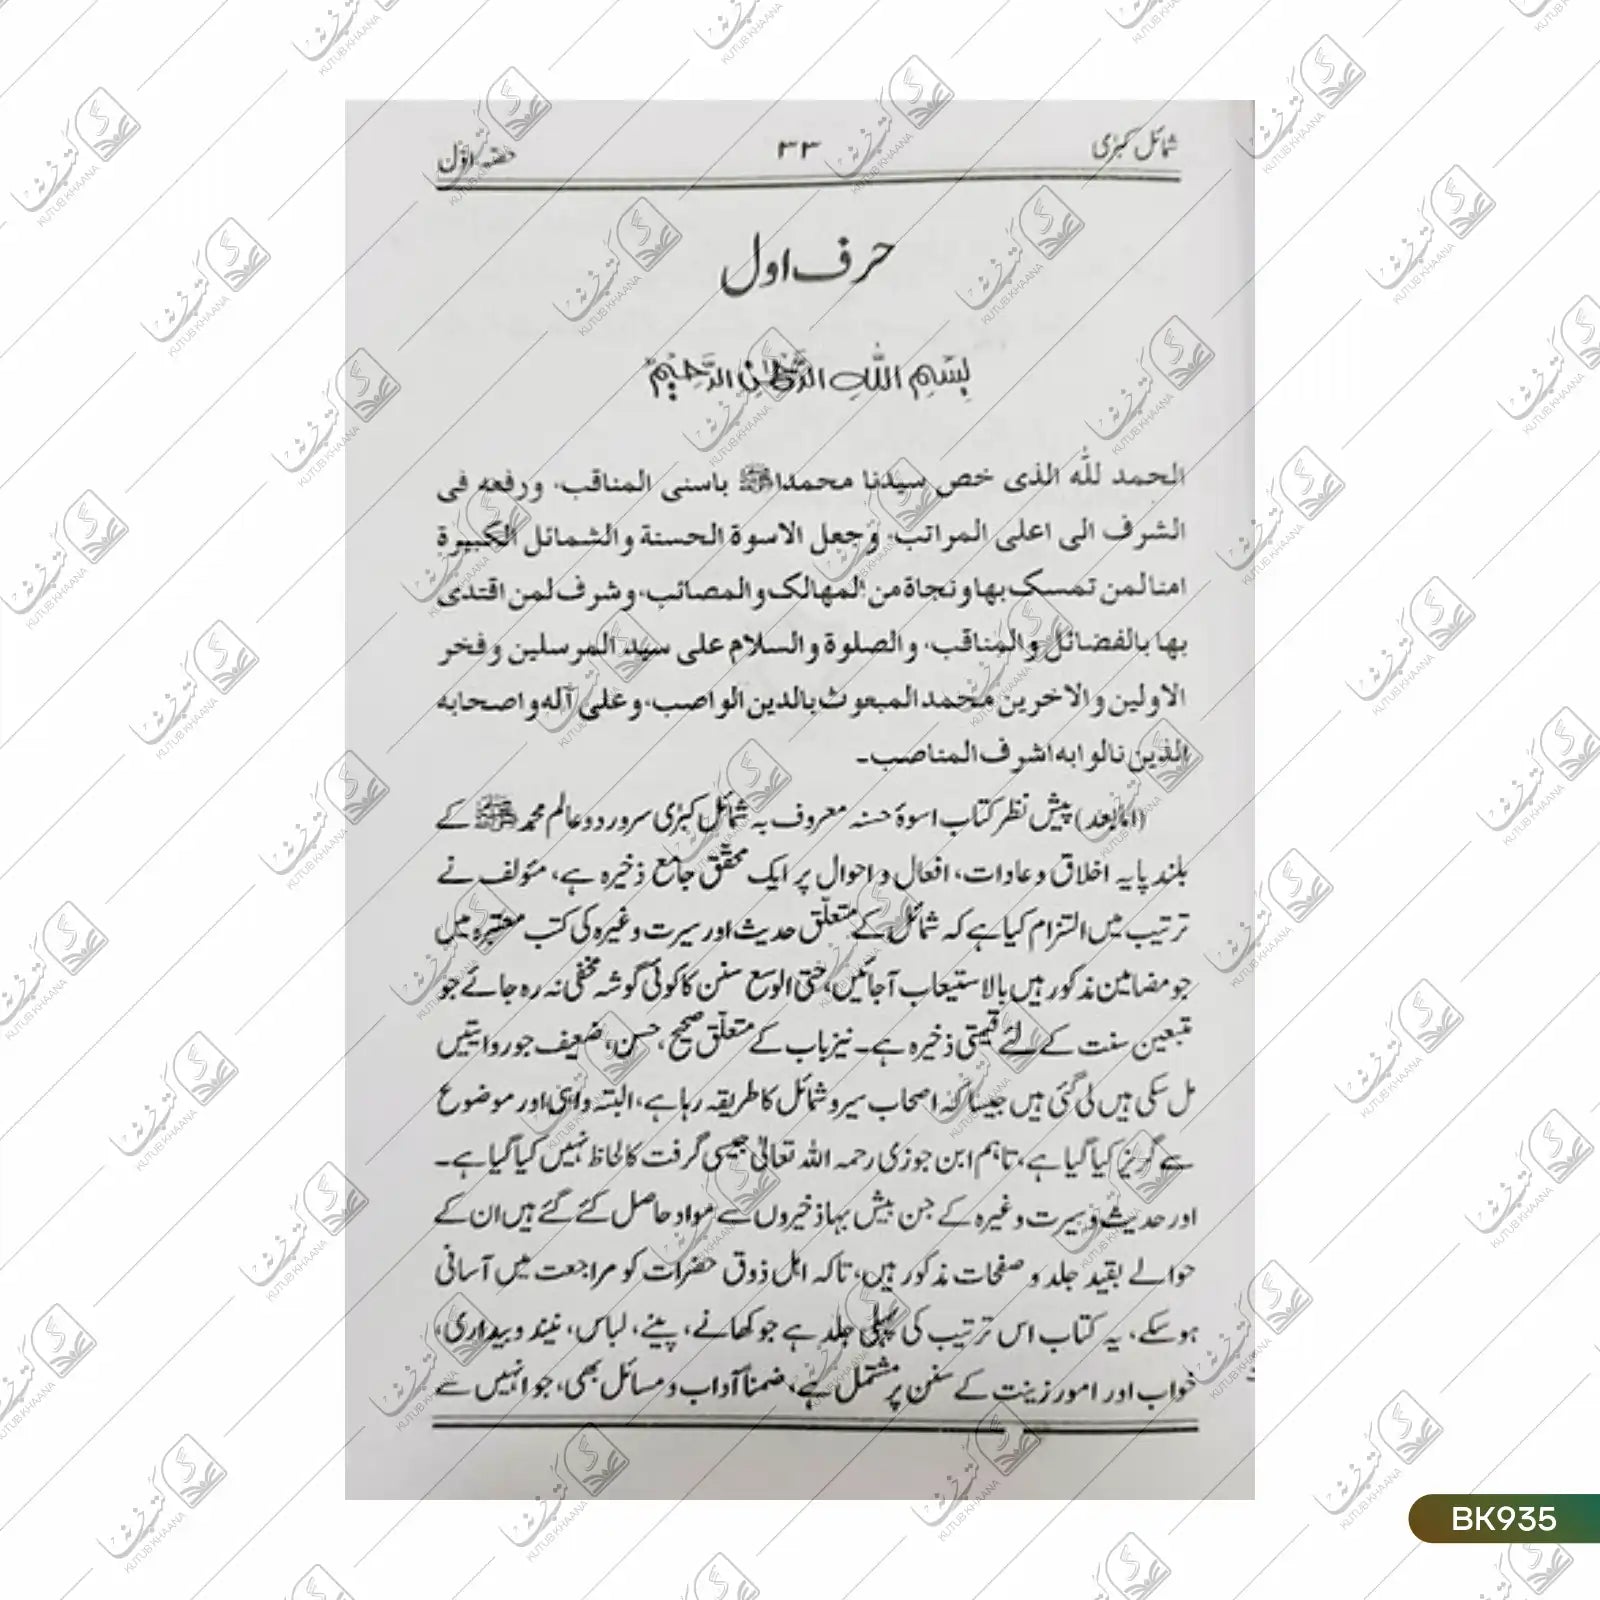 شمائل کبریٰ ۳۳ حصہ اوّل
حرف اول
بِسْمِ اللّٰهِ الرَّحْمٰنِ الرَّحِيْمِ
الحمد للّٰه الذى خص سيدنا محمداﷺ باسنى المناقب، ورفعه فى
الشرف الى اعلى المراتب، وجعل الاسوة الحسنة والشمائل الكبيرة
امنا لمن تمسك بها ونجاة من المهالك والمصائب، وشرف لمن اقتدى
بها بالفضائل والمناقب، والصلوة والسلام على سيد المرسلين وفخر
الاولين والاخرين محمد المبعوث بالدين الواصب، وعلى آله واصحابه
الذين نالوا به اشرف المناصب۔
(امابعد) پیش نظر کتاب اسوۂ حسنہ معروف بہ شمائل کبریٰ سرور دو عالم محمدﷺ کے
بلند پایہ اخلاق و عادات، افعال و احوال پر ایک محقّق جامع ذخیرہ ہے، مؤلف نے
ترتیب میں التزام کیا ہے کہ شمائل کے متعلّق حدیث اور سیرت وغیرہ کی کتب معتبرہ میں
جو مضامین مذکور ہیں بالاستیعاب آجائیں، حتی الوسع سنن کا کوئی گوشہ مخفی نہ رہ جائے جو
متبعین سنت کے لئے قیمتی ذخیرہ ہے۔ نیز باب کے متعلّق صحیح، حسن، ضعیف جو روایتیں
مل سکی ہیں لی گئی ہیں جیسا کہ اصحاب سیر و شمائل کا طریقہ رہا ہے، البتہ واہی اور موضوع
سے گریز کیا گیا ہے، تاہم ابن جوزی رحمہ اللہ تعالیٰ جیسی گرفت کا لحاظ نہیں کیا گیا ہے۔
اور حدیث و سیرت وغیرہ کے جن بیش بہا ذخیروں سے مواد حاصل کئے گئے ہیں ان کے
حوالے بقید جلد و صفحات مذکور ہیں، تاکہ اہل ذوق حضرات کو مراجعت میں آسانی
ہو سکے، یہ کتاب اس ترتیب کی پہلی جلد ہے جو کھانے، پینے، لباس، نیند و بیداری،
خواب اور امور زینت کے سنن پر مشتمل ہے، ضمناً آداب و مسائل بھی، جو انہیں سے
BK935